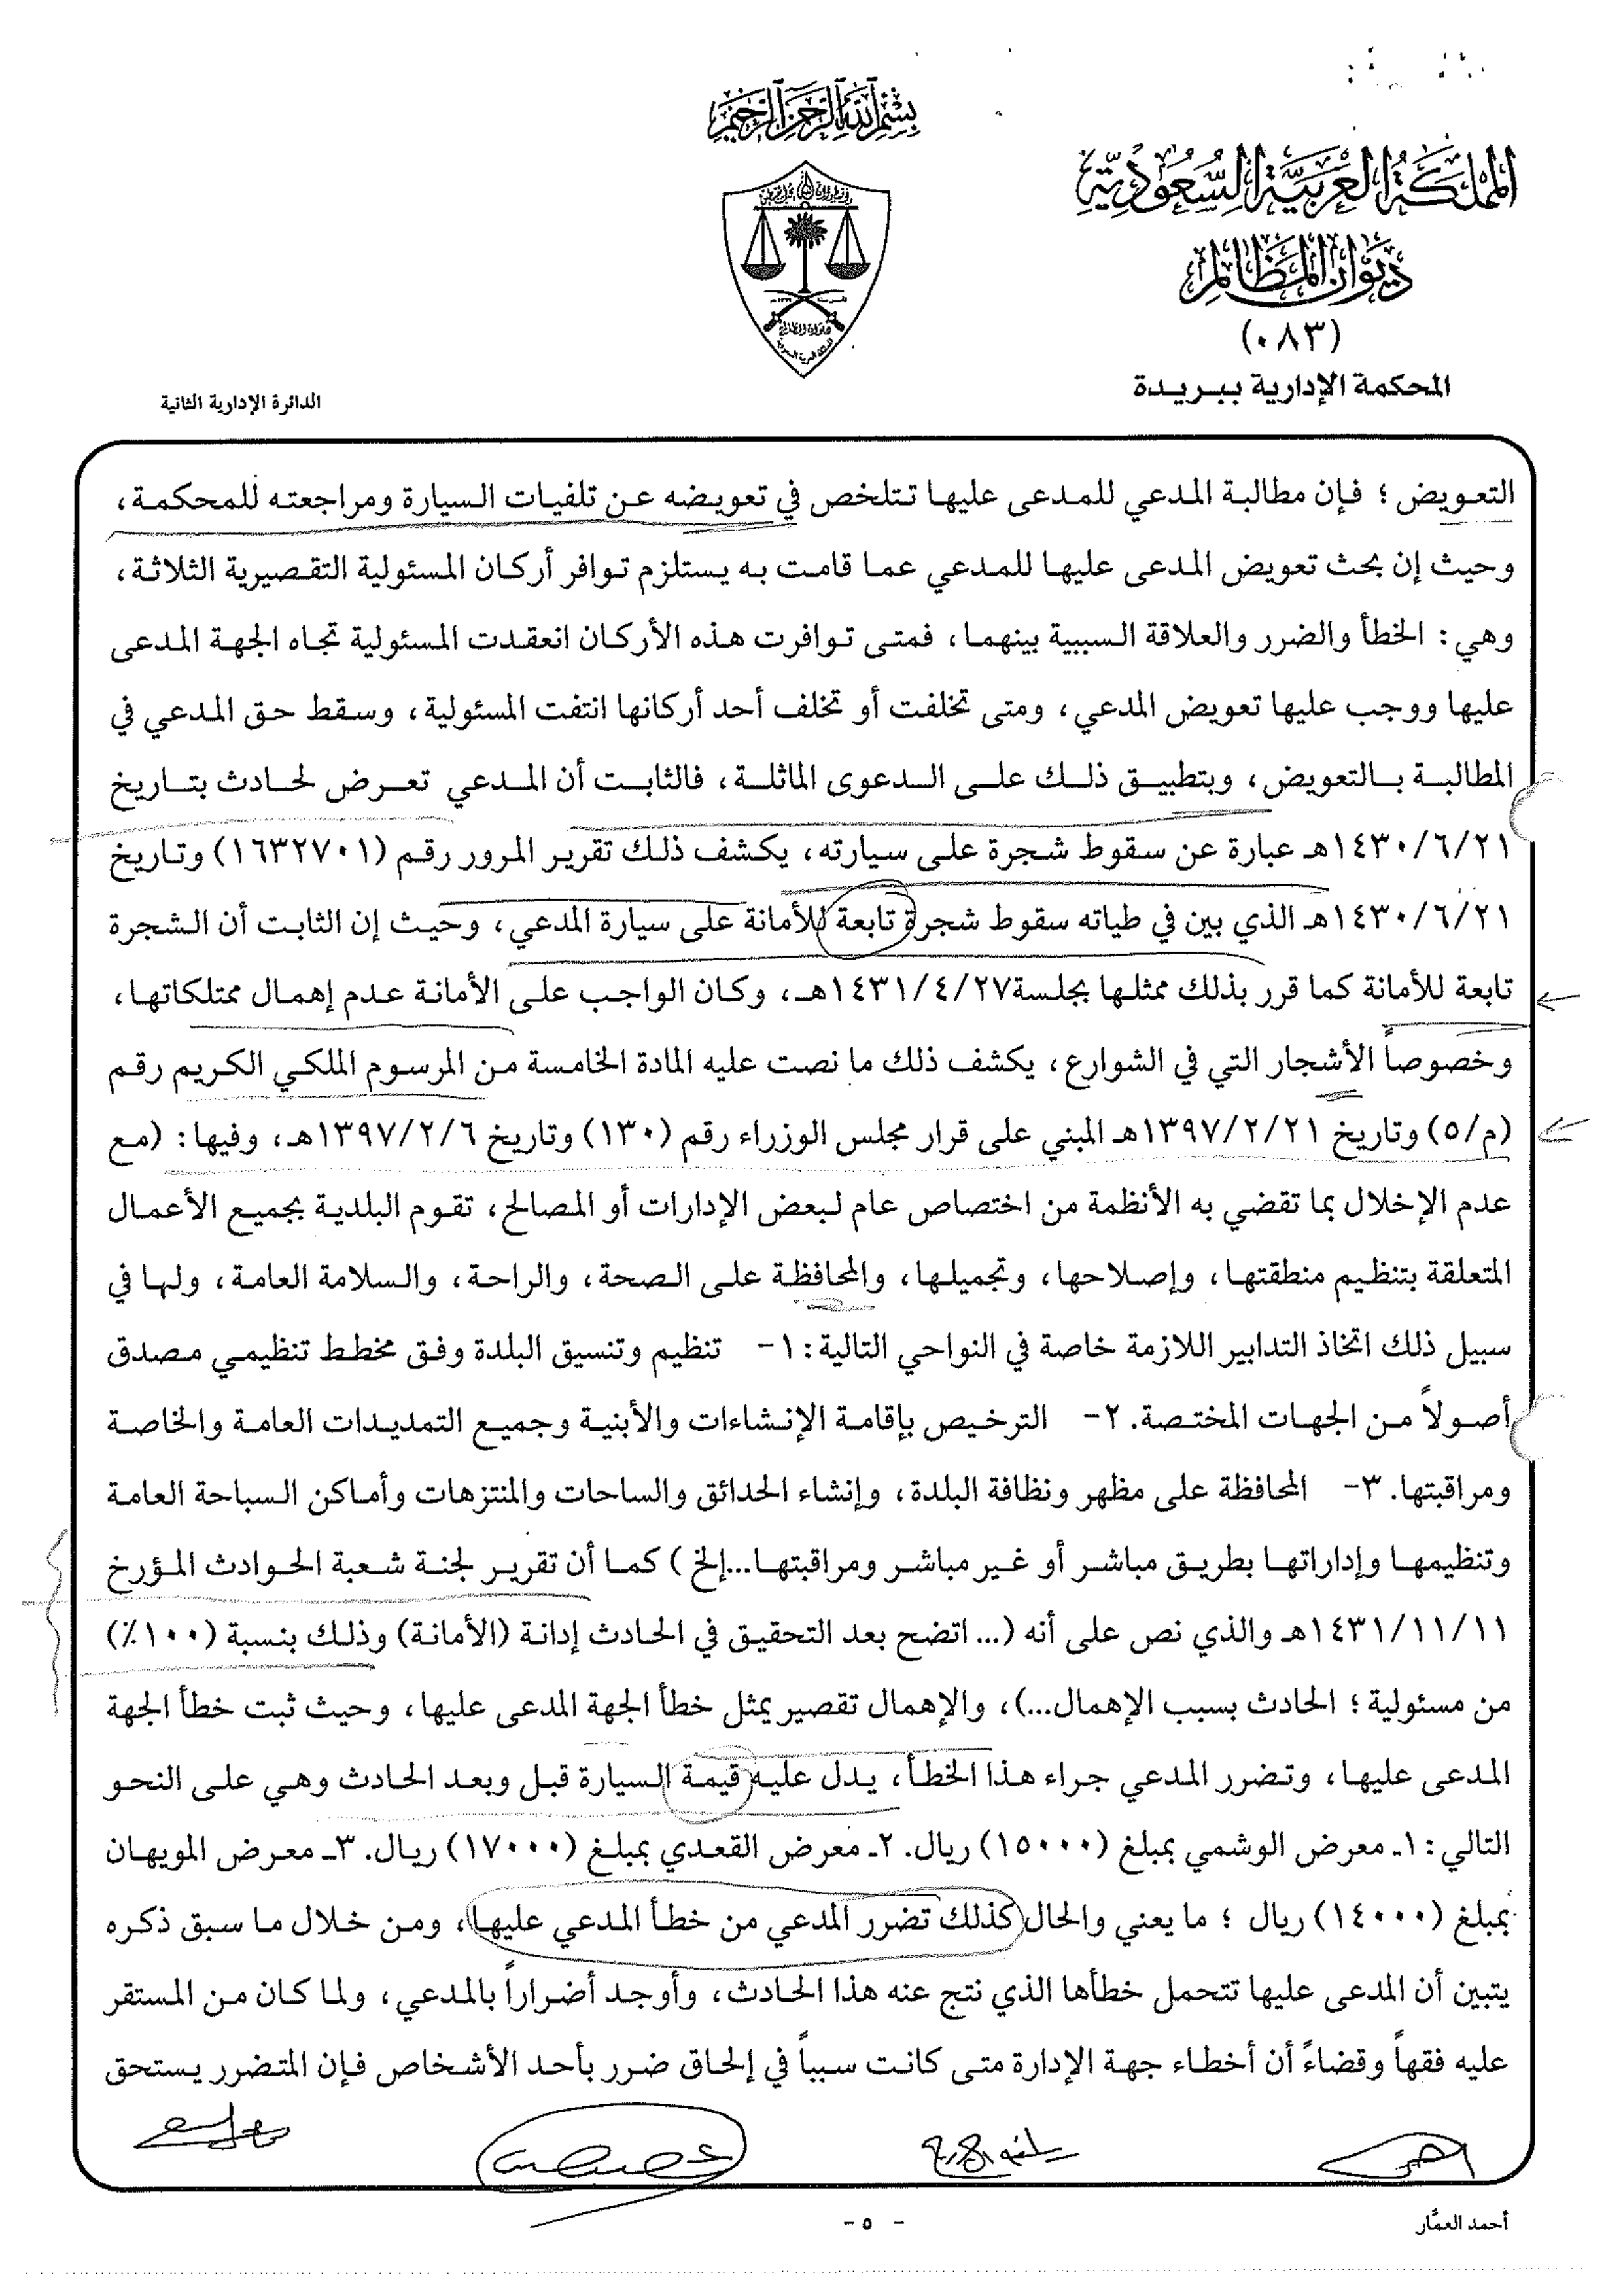 بسم الله الرحمن الرحيم
المملكة العربية السعودية
ديوان المظالم
(٠٨٣)
المحكمة الإدارية ببريدة
الدائرة الإدارية الثانية
التعويض ؛ فإن مطالبة المدعي للمدعى عليها تتلخص في تعويضه عن تلفيات السيارة ومراجعته للمحكمة،
وحيث إن بحث تعويض المدعى عليها للمدعي عما قامت به يستلزم توافر أركان المسئولية التقصيرية الثلاثة،
وهي: الخطأ والضرر والعلاقة السببية بينهما، فمتى توافرت هذه الأركان انعقدت المسئولية تجاه الجهة المدعى
عليها ووجب عليها تعويض المدعي، ومتى تخلفت أو تخلف أحد أركانها انتفت المسئولية، وسقط حق المدعي في
المطالبة بالتعويض، وبتطبيق ذلك على الدعوى الماثلة، فالثابت أن المدعي تعرض لحادث بتاريخ
١٤٣٠/٦/٢١هـ عبارة عن سقوط شجرة على سيارته، يكشف ذلك تقرير المرور رقم (١٦٣٢٧٠١) وتاريخ
١٤٣٠/٦/٢١هـ الذي بين في طياته سقوط شجرة تابعة للأمانة على سيارة المدعي، وحيث إن الثابت أن الشجرة
تابعة للأمانة كما قرر بذلك ممثلها بجلسة١٤٣١/٤/٢٧هـ، وكان الواجب على الأمانة عدم إهمال ممتلكاتها،
وخصوصاً الأشجار التي في الشوارع، يكشف ذلك ما نصت عليه المادة الخامسة من المرسوم الملكي الكريم رقم
(م/٥) وتاريخ ١٣٩٧/٢/٢١هـ المبني على قرار مجلس الوزراء رقم (١٣٠) وتاريخ ١٣٩٧/٢/٦هـ، وفيها: (مع
عدم الإخلال بما تقضي به الأنظمة من اختصاص عام لبعض الإدارات أو المصالح، تقوم البلدية بجميع الأعمال
المتعلقة بتنظيم منطقتها، وإصلاحها، وتجميلها، والمحافظة على الصحة، والراحة، والسلامة العامة، ولها في
سبيل ذلك اتخاذ التدابير اللازمة خاصة في النواحي التالية: ١- تنظيم وتنسيق البلدة وفق مخطط تنظيمي مصدق
أصولاً من الجهات المختصة. ٢- الترخيص بإقامة الإنشاءات والأبنية وجميع التمديدات العامة والخاصة
ومراقبتها. ٣- المحافظة على مظهر ونظافة البلدة، وإنشاء الحدائق والساحات والمنتزهات وأماكن السباحة العامة
وتنظيمها وإداراتها بطريق مباشر أو غير مباشر ومراقبتها...إلخ ) كما أن تقرير لجنة شعبة الحوادث المؤرخ
١٤٣١/١١/١١هـ والذي نص على أنه (... اتضح بعد التحقيق في الحادث إدانة (الأمانة) وذلك بنسبة (١٠٠٪)
من مسئولية ؛ الحادث بسبب الإهمال...)، والإهمال تقصير يمثل خطأ الجهة المدعى عليها، وحيث ثبت خطأ الجهة
المدعى عليها، وتضرر المدعي جراء هذا الخطأ، يدل عليه قيمة السيارة قبل وبعد الحادث وهي على النحو
التالي: ١ـ معرض الوشمي بمبلغ (١٥٠٠٠) ريال. ٢ـ معرض القعدي بمبلغ (١٧٠٠٠) ريال. ٣ـ معرض المويهان
بمبلغ (١٤٠٠٠) ريال ؛ ما يعني والحال كذلك تضرر المدعي من خطأ المدعي عليها، ومن خلال ما سبق ذكره
يتبين أن المدعى عليها تتحمل خطأها الذي نتج عنه هذا الحادث، وأوجد أضراراً بالمدعي، ولما كان من المستقر
عليه فقهاً وقضاءً أن أخطاء جهة الإدارة متى كانت سبباً في إلحاق ضرر بأحد الأشخاص فإن المتضرر يستحق
أحمد العمَّار
- ٥ -